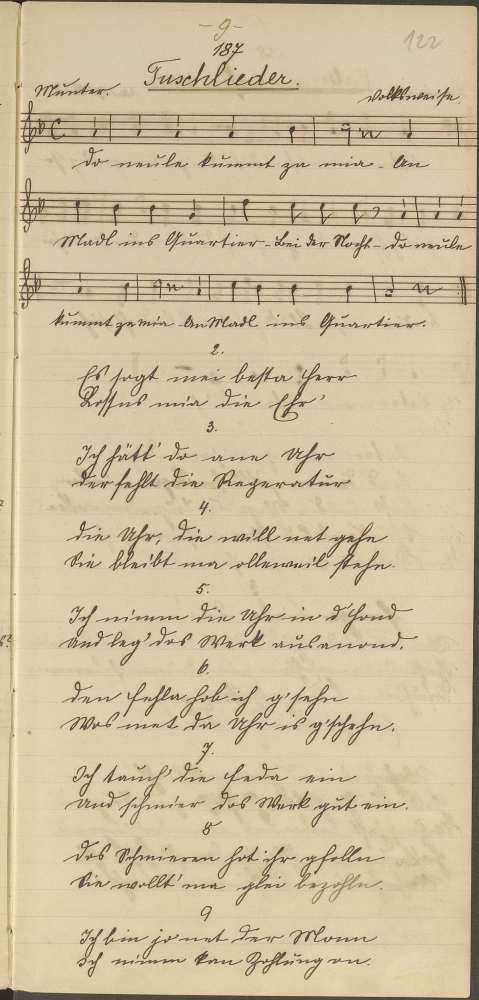 -9-
122
187
Tuschlieder.
Munter.
Volksweise.
Do neule kummt zu mia - An
Madl ins Quartier - Bei der Nocht - do neule
kummt zu mia An Madl ins Quartier.
2.
Es sogt mei besta Herr
Lossns mia die Ehr'
3.
Ich hätt' do ane Uhr
der fehlt die Regeratur
4.
die Uhr, die will net gehn
Sie bleibt ma olleweil stehn.
5.
Ich nimm die Uhr in d'Hond
und leg' dos Werk ausanond.
6.
den Fehla hob ich g'sehn
Wos met da Uhr is g'schehn.
7.
Ich tauch' die Feda ein
und schmier dos Werk gut ein.
8
dos Schmieren hot ihr gfolln
Sie wollt' ma glei bezohln.
9
Ich bin jo net der Monn
Ich nimm kan Zohlung on.